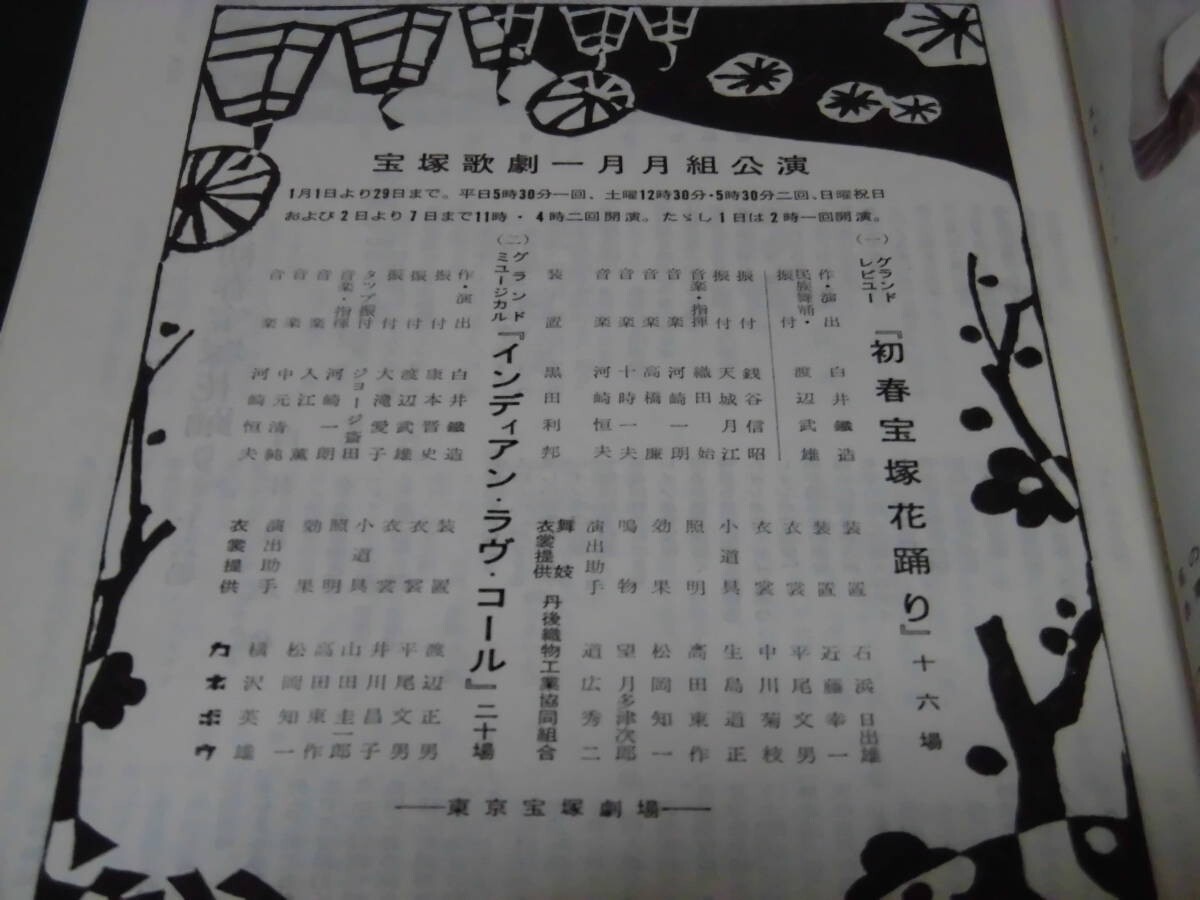 宝塚歌劇一月月組公演
1月1日より29日まで。平日5時30分一回、土曜12時30分・5時30分二回、日曜祝日
および2日より7日まで11時・4時二回開演。たゞし1日は2時一回開演。
(一)グランドレビュー『初春宝塚花踊り』十六場
作・演出 白井鐵造
民族舞踊・振付 渡辺武雄
振付 銭谷信昭
振付 天城月江
音楽・指揮 織田始
音楽 河崎一朗
音楽 高橋廉
音楽 十時一夫
音楽 河崎恒夫
装置 黒田利邦
装置 石浜日出雄
装置 近藤幸一
衣裳 平尾文男
衣裳 中川菊枝
小道具 生島道正
照明 高田東作
効果 松岡知一
鳴物 望月多津次郎
演出助手 道広秀二
舞妓衣裳提供 丹後織物工業協同組合
(二)グランドミュージカル『インディアン・ラヴ・コール』二十場
作・演出 白井鐵造
振付 康本晋史
振付 渡辺武雄
振付 大滝愛子
タップ振付 ジョージ齋田
音楽・指揮 河崎一朗
音楽 入江薫
音楽 中元清純
音楽 河崎恒夫
装置 渡辺正男
衣裳 平尾文男
衣裳 井川昌子
小道具 山田圭一郎
照明 高田東作
効果 松岡知一
演出助手 横沢英雄
衣裳提供 カネボウ
──東京宝塚劇場──